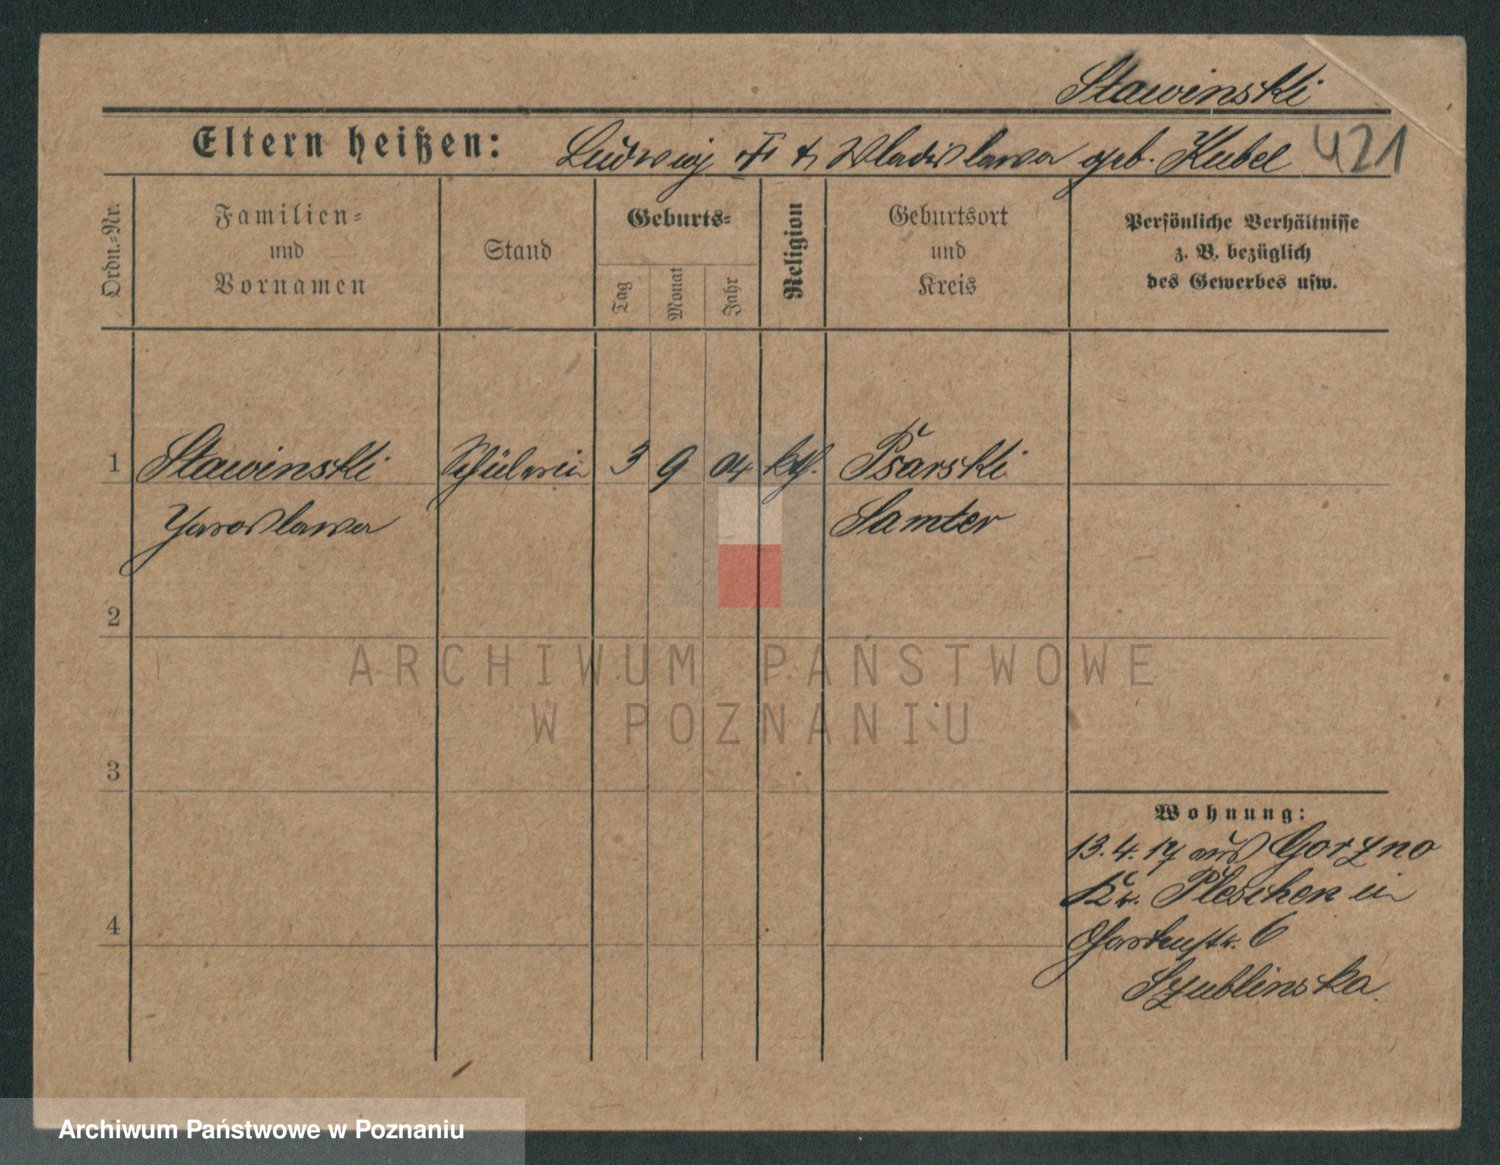 Stawinski
Eltern heißen: Ludwig & Wladislawa geb. Kubel 421
Ordn.=Nr.
Familien=
und
Vornamen
Stand
Geburts=
Tag
Monat
Jahr
Religion
Geburtsort
und
Kreis
Persönliche Verhältnisse
z. B. bezüglich
des Gewerbes usw.
1 Stawinski Schülerin 3 9 04 kth. Psarski
Yaroslawa Samter
2
3
4
ARCHIWUM PAŃSTWOWE
W POZNANIU
Wohnung:
13.4.17 aus Gorzno
Kr. Pleschen in
Gartenstr. 6
Szublinska
Archiwum Państwowe w Poznaniu